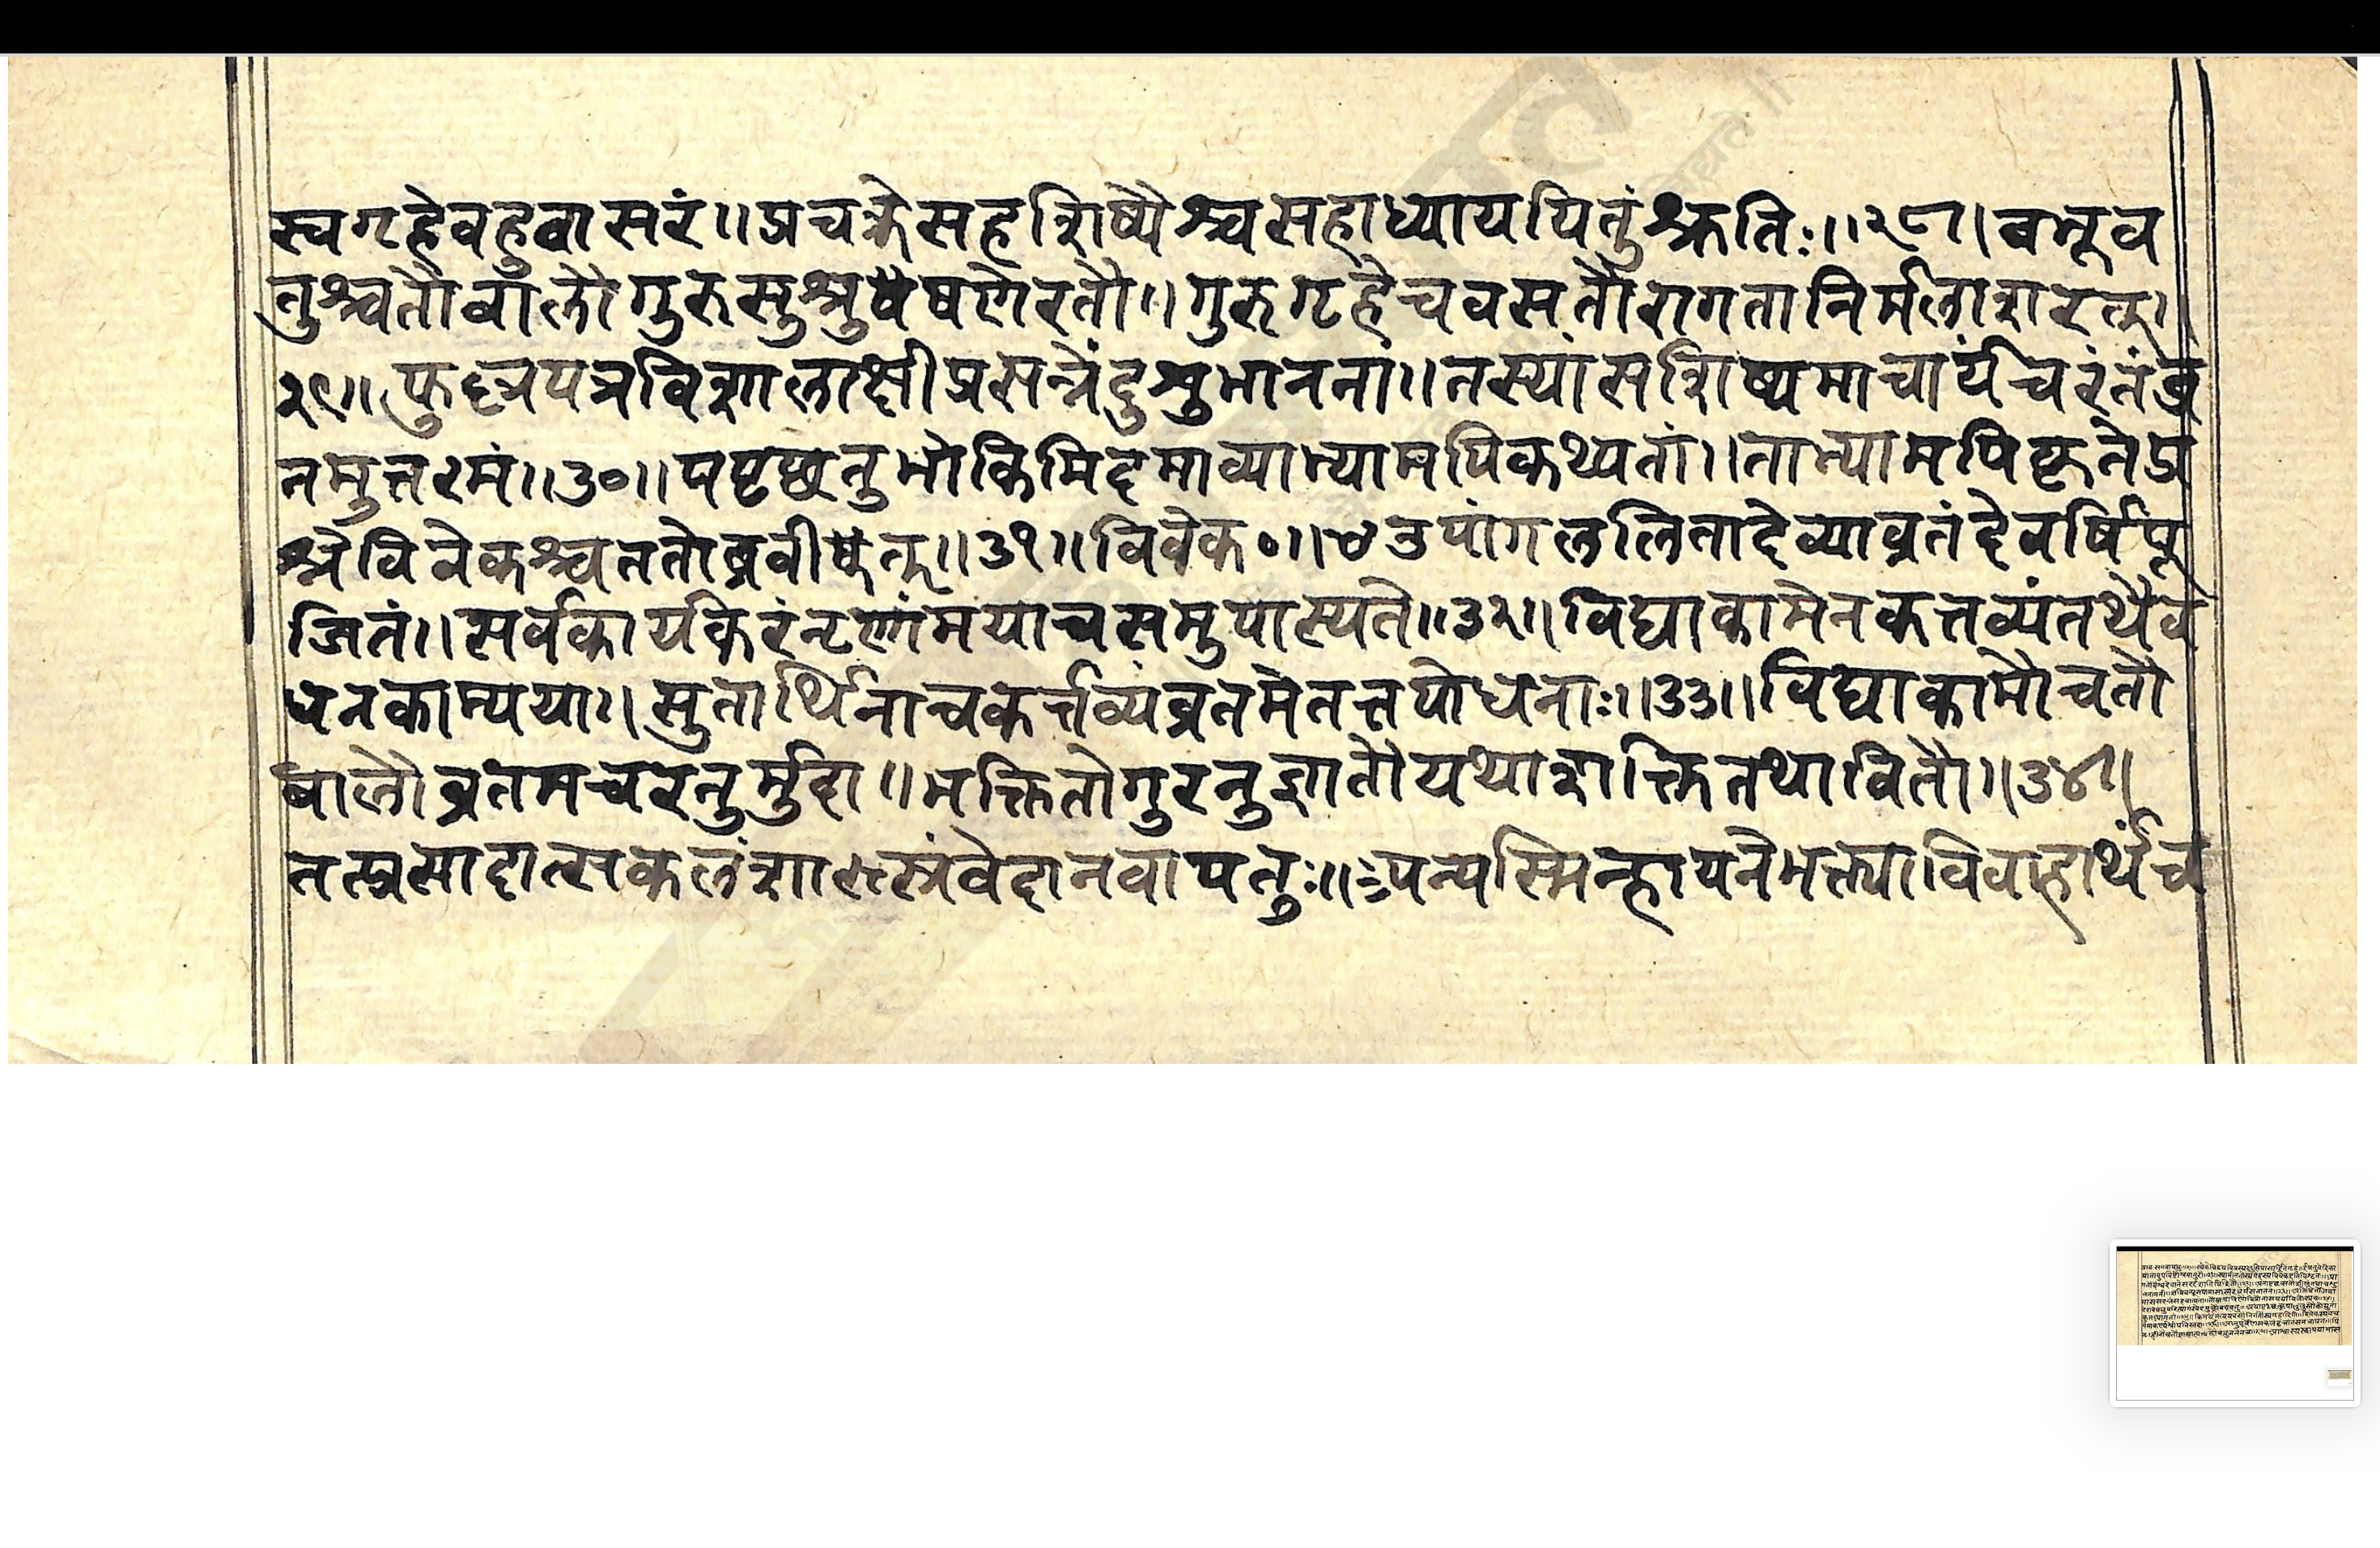 स्वगृहेवहुवासरं॥प्रचक्रेसहशिष्यैश्चसहाध्यायपितुंश्रुतिः॥२८॥बभूव
तुश्चतौबालौगुरुसुश्रुषेषणेरतौ॥गुरुगृहेचवसतौरागतानिर्मलाशरत्॥
२९॥फुद्दत्रपत्रविशालाक्षीप्रसन्नेंदुशुभानना॥तस्यांसशिष्यमाचार्यंचरंतंव्र
तमुत्तरमं॥३०॥पपृछतुभोकिमिदमाव्याभ्यामपिकथ्यतां॥ताभ्यामपिकृतेप्र
श्नेविवेकश्चततोब्रवीत्॥३१॥विवेक०॥उपांगललितादेव्याव्रतंदेवर्षिपू
जितं॥सर्वकार्यकरंनृणांमयाचसमुपास्यते॥३२॥विद्याकामेनकत्तव्यंतथैव
धनकाम्यया॥सुतार्थिनाचकर्त्तव्यंव्रतमेतत्तपोधनाः॥३३॥विद्याकामौचतौ
बालौव्रतमचरतुर्मुदा॥भक्तितोगुरनुज्ञातौयथाशक्तितथावितौ॥३४॥
तत्प्रसादात्सकलंशास्त्रंवेदानवापतुः॥पन्यस्मिन्हायनेभक्त्याविवाहार्थंच